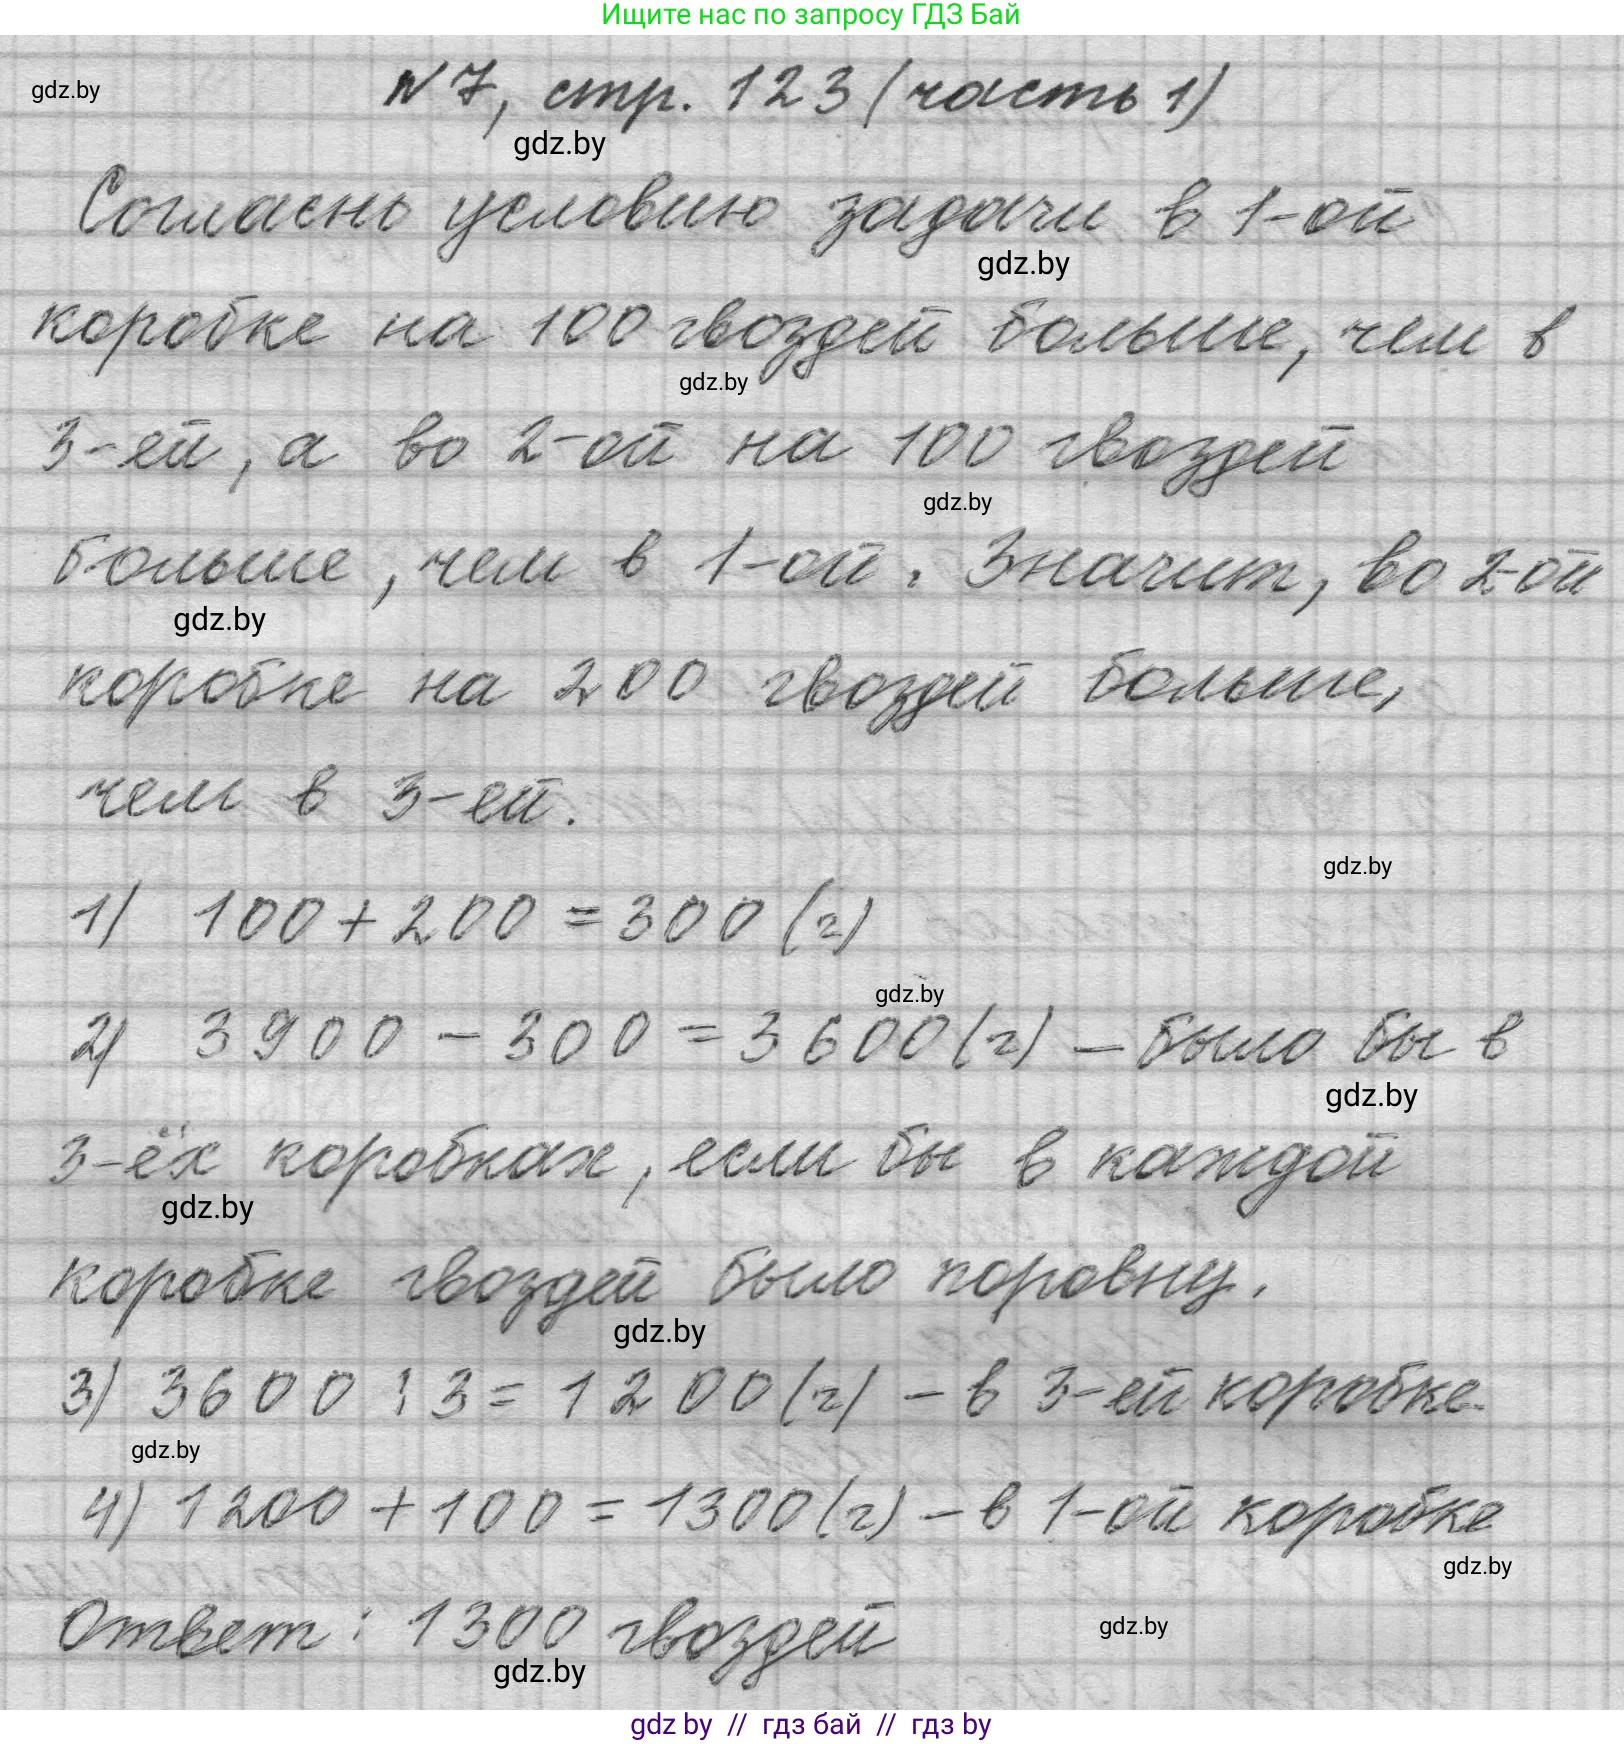 Ищите нас по запросу ГДЗ Бай
gdz.by
№7, стр. 123 (часть 1)
gdz.by
Согласно условию задачи в 1-ой
gdz.by
коробке на 100 гвоздей больше, чем в
gdz.by
3-ей, а во 2-ой на 100 гвоздей
gdz.by
больше, чем в 1-ой. Значит, во 2-ой
gdz.by
коробке на 200 гвоздей больше,
чем в 3-ей.
gdz.by
1) 100 + 200 = 300 (г)
gdz.by
2) 3900 - 300 = 3600 (г) - было бы в
gdz.by
3-ёх коробках, если бы в каждой
gdz.by
коробке гвоздей было поровну.
gdz.by
3) 3600 : 3 = 1200 (г) - в 3-ей коробке.
gdz.by
4) 1200 + 100 = 1300 (г) - в 1-ой коробке
gdz.by
Ответ: 1300 гвоздей
gdz.by
gdz.by
gdz by // гдз бай // гдз by